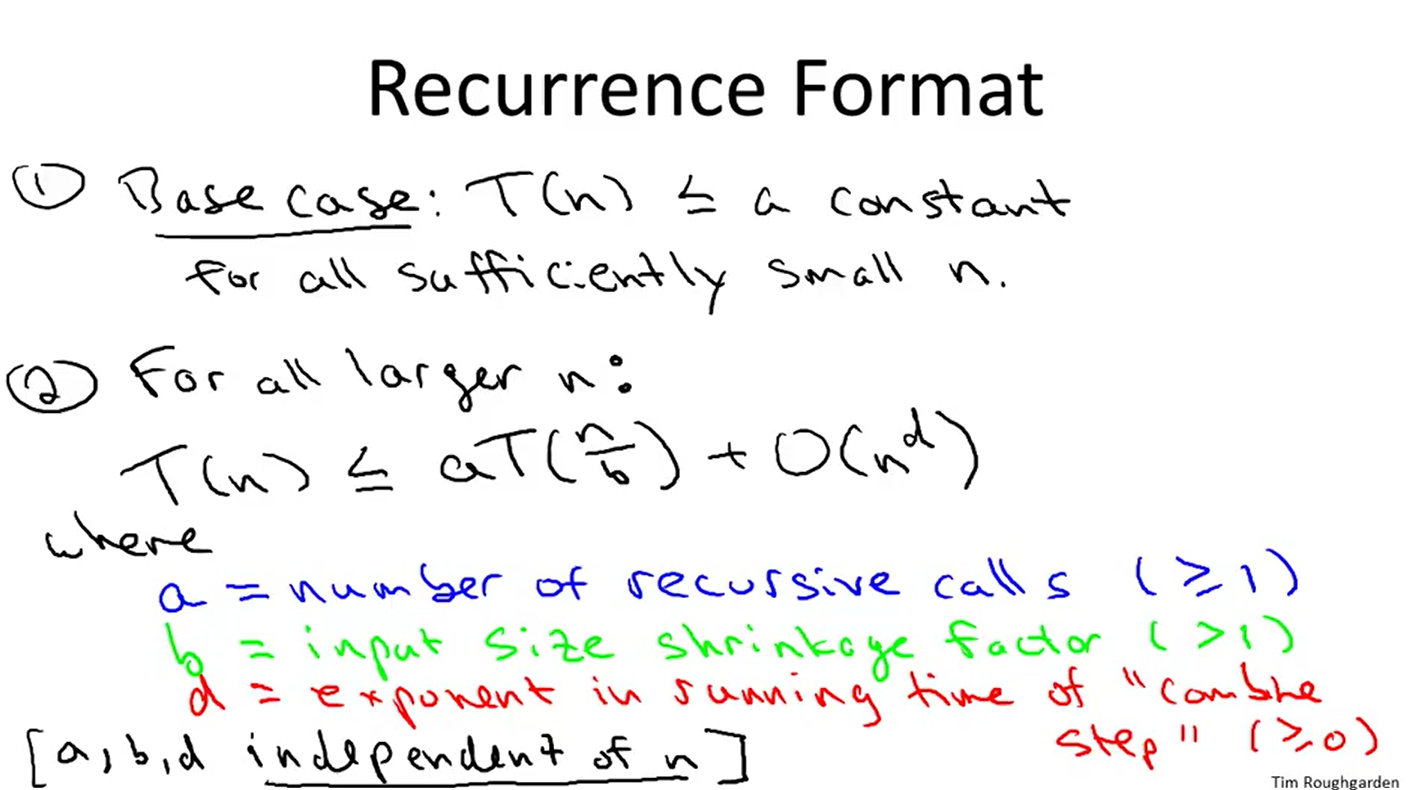 Recurrence Format
① Base case: T(n) ≤ a constant
for all sufficiently small n.
② For all larger n:
T(n) ≤ aT(n/b) + O(n^d)
where
a = number of recursive calls (≥ 1)
b = input size shrinkage factor (> 1)
d = exponent in running time of "combine
step" (≥ 0)
[a, b, d independent of n]
Tim Roughgarden